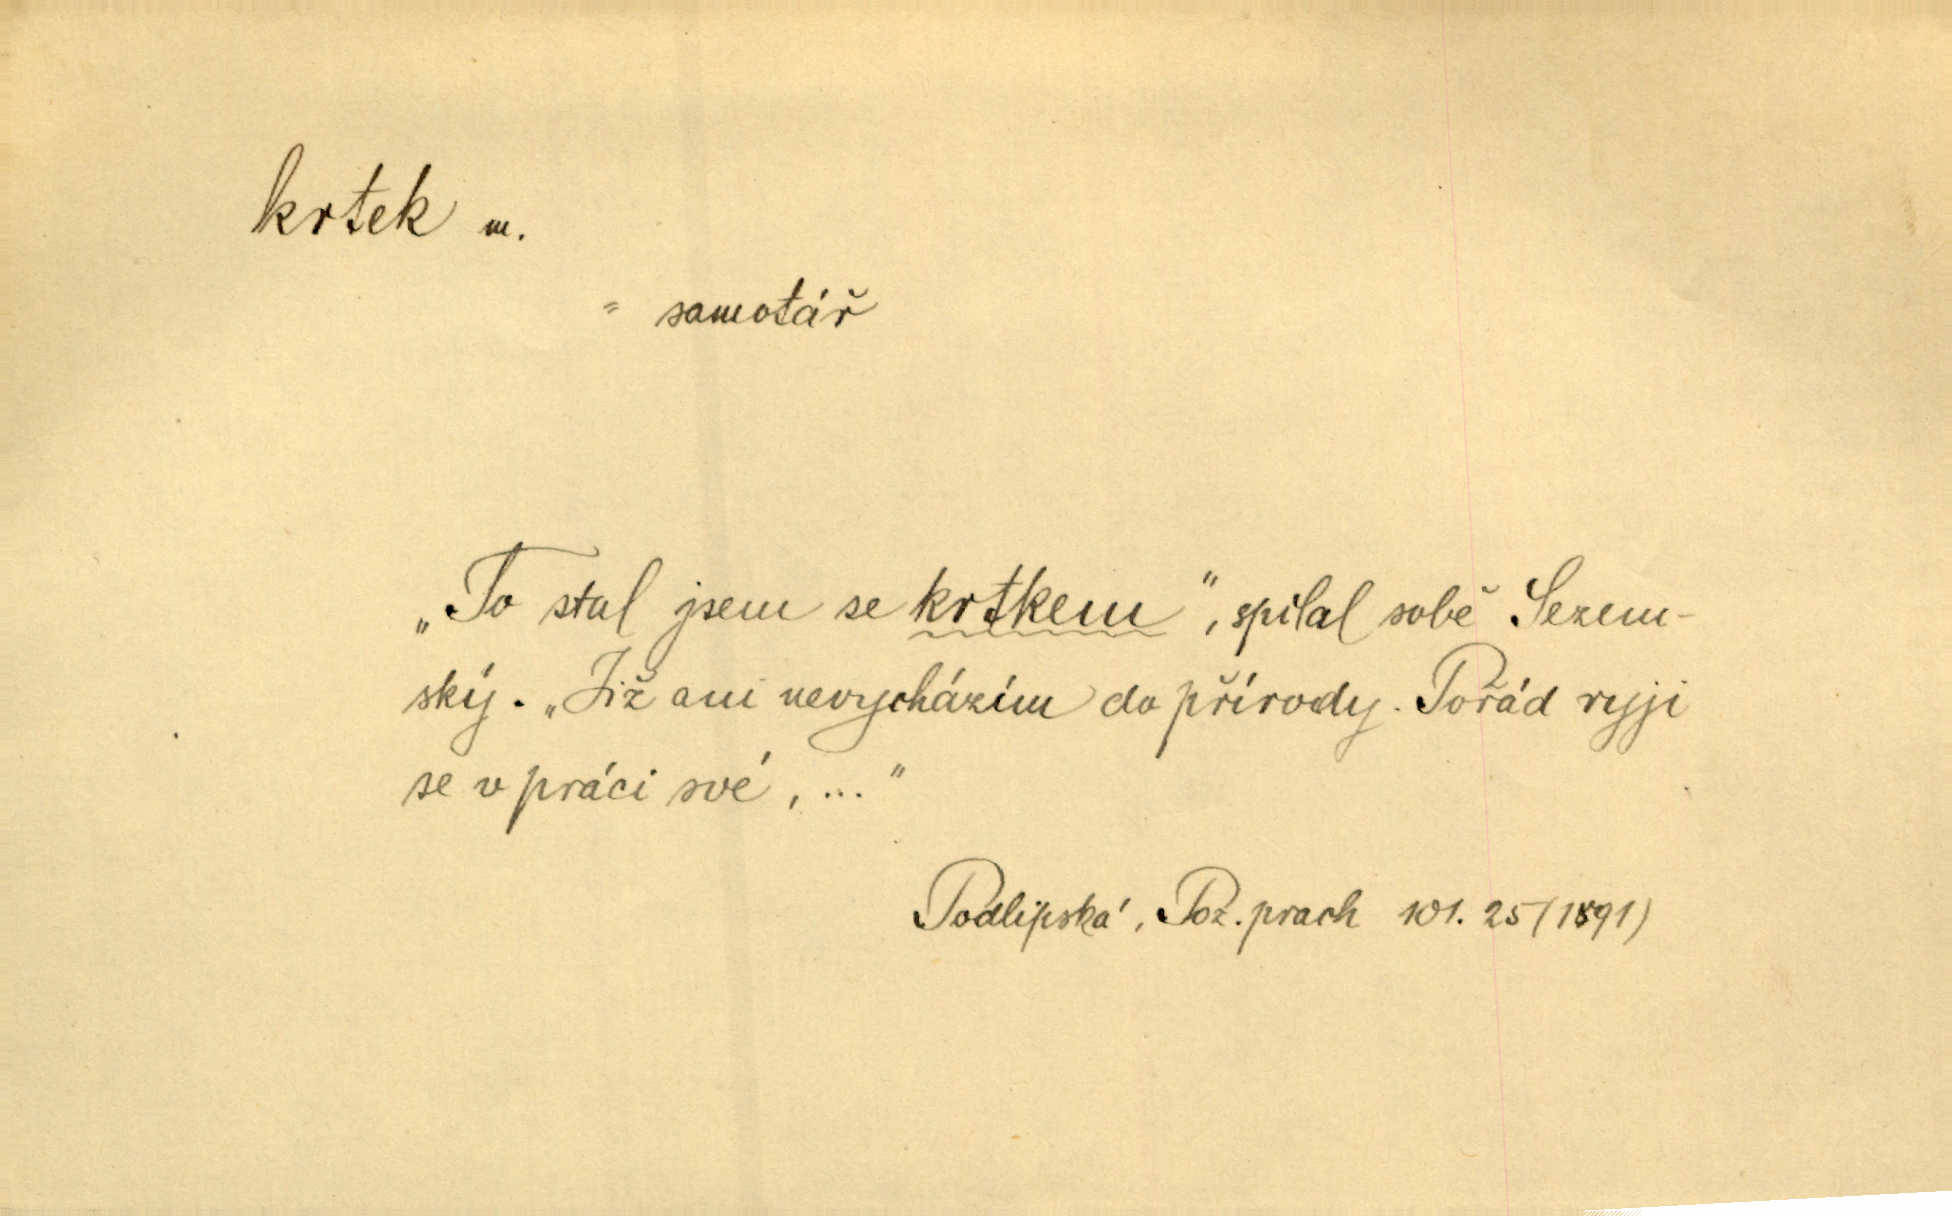 krtek m.
= samotář
„To stal jsem se krtkem“, spílal sobě Sezem-
ský. „Již ani nevycházím do přírody. Pořád ryji
se v práci své, ...“
Podlipská, Poz. prach 101. 25 (1891)